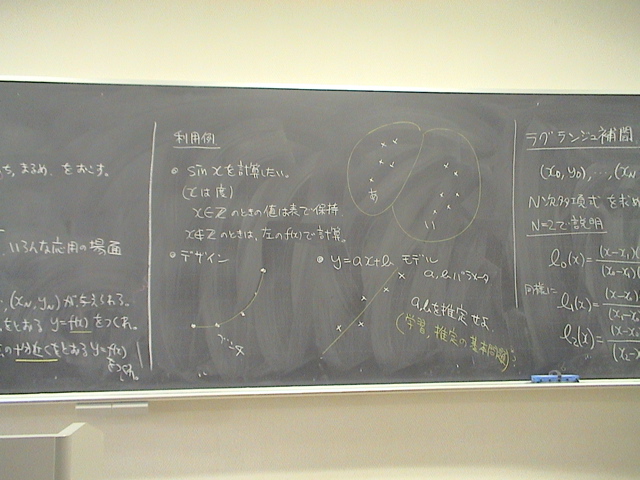 ち, まるめ, をおこす.
いろんな応用の場面
, (x_N, y_N) が与えられる.
をとおる y=f(x) をつくれ.
の十分近くをとおる y=f(x)
をつくれ.
利用例
• sin x を計算したい.
(x は度)
x∈Z のときの値は表で保持
x∉Z のときは, 左の f(x) で計算.
• デザイン
あ
い
• y=ax+b モデル
a, b パラメータ
a, b を推定せよ
(学習, 推定の基本問題)
ラグランジュ補間
(x_0, y_0), ..., (x_N
N次多項式を求め
N=2で説明
l_0(x) = (x-x_1)(
(x_0-x_1)
同様に
l_1(x) = (x-x_0)
(x_1-x_0)
l_2(x) = (x-x_0)
(x_2-x